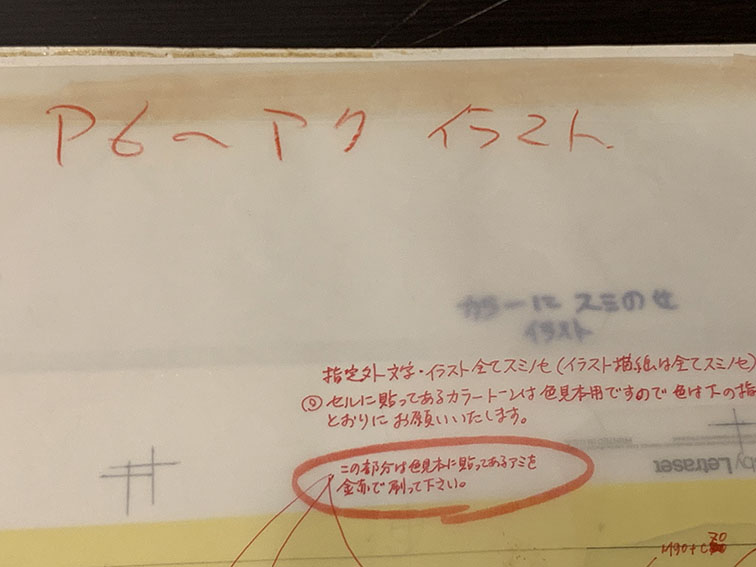 P6〜P7 イラスト
カラーに スミのせ
イラスト
指定外文字・イラスト全てスミノセ(イラスト描線は全てスミノセ)
◎ セルに貼ってあるカラートーンは色見本用ですので色は下の指
とおりにお願いいたします。
by Letraser
この部分は色見本に貼ってあるアミを
金赤で刷って下さい。
M90+C70